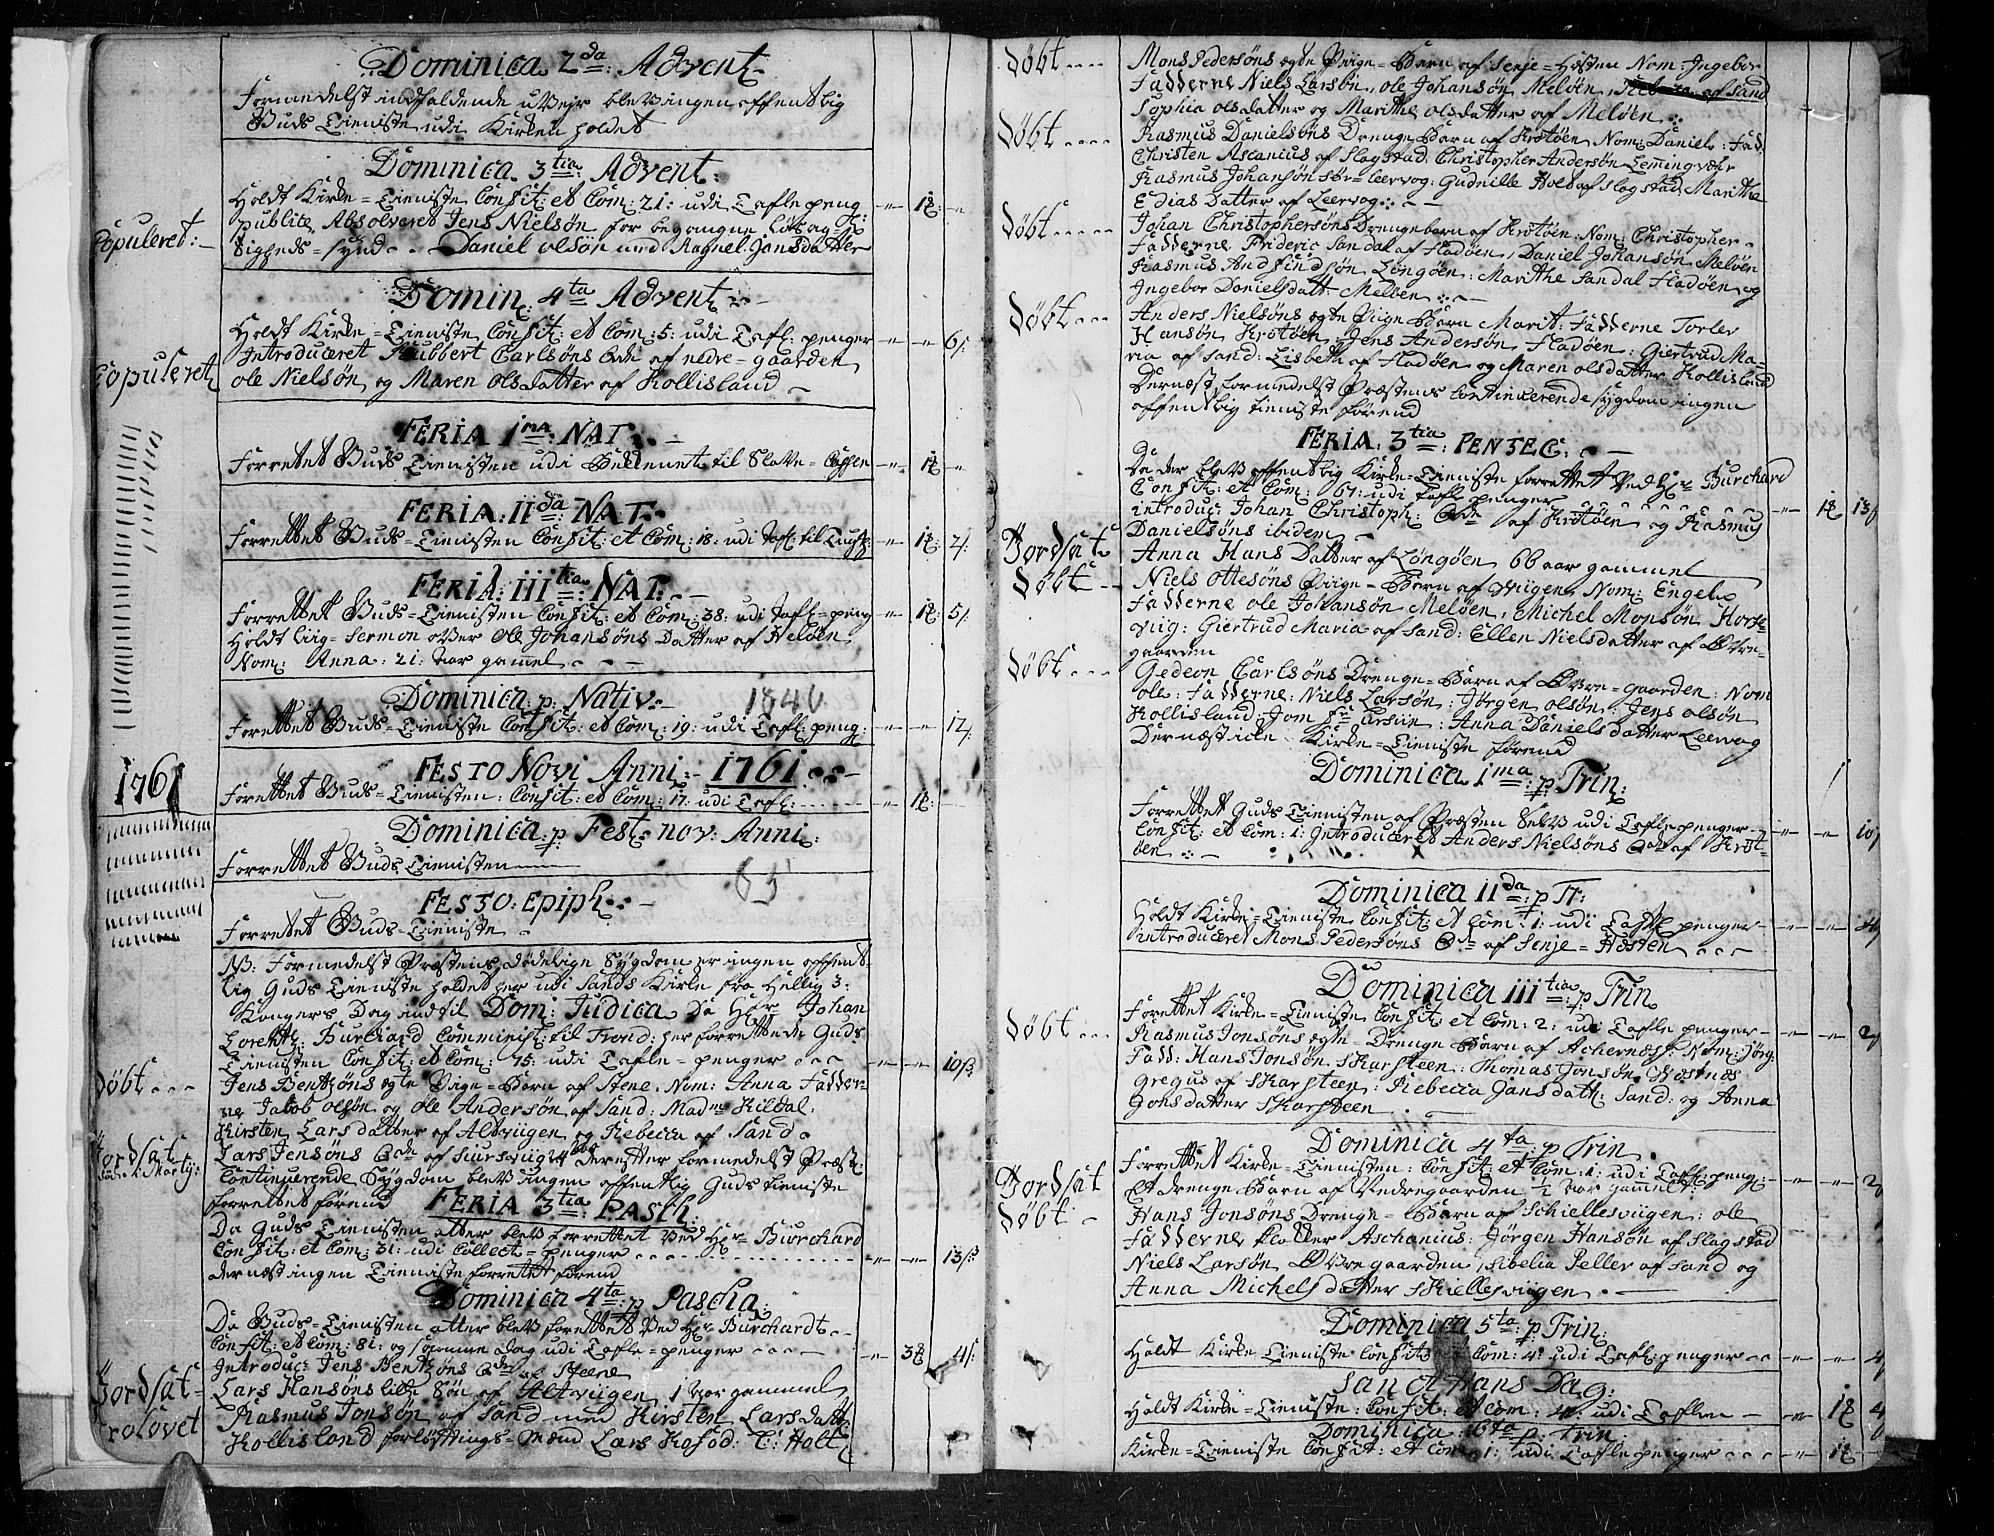 Dominica 2da Advent
Formedelst indfaldende uVejr blev ingen offentlig
Guds Tieniste udi Kirken holdet
Dominica 3tia Advent:
Holdt Kirke=Tieniste Confit: et Com: 21: udi Tafle peng
publice Absolveret Jens Nielsøn for begangne
Copuleret:
Sigheds=synd Daniel olsøn med Ragnel Jonsdatter
Domin: 4ta Advent
Holdt Kirke=Tieniste Confit: et Com: 5: udi Tafl: penger 6/:
Introduceret Hubbert Carlsøns Qde af nedre=gaarden
Copuleret
ole Nielsøn og Maren olsdatter af Kollisland
FERIA 1MA: NAT:
Forrettet Guds Tienisten udi Bekkenet til Slave=Cassen
FERIA: IIda: NAT:
Forrettet Guds=Tienisten Confit: et Com: 18: udi Tafl: til
FERIA: IIItia: NAT:
Forrettet Guds=Tienisten Confit: et Com: 38: udi Tafl=peng 5/:
Holdt Liig=Sermon over Ole Johansøns Datter af Meløen
Nom: Anna: 21: aar gamel
Dominica p: Nativ: 1846
Forrettet Guds=Tieniste Confit: et Com: 19: udi Tafl: peng: 12/:
1761
FESTO Novi Anni: 1761
Forettet Guds=Tienisten: Confit: et Com: 17: udi Tafl:
Dominica: p Fest: nov: Anni:
Forrettet Guds Tienisten
FESTO: Epiph:
Forrettet Guds=Tieniste
NB: Formedelst Præstens dødelige Sygdom er ingen offent
lig Guds Tieniste holdet her udi Sands Kirke fra Hellig 3:
Kongers Dag indtil Dom: Judica Da Hr: Johan
Lorentz: Burchard Comminist: til Trond: her forrettede Guds
Tienisten Confit: et Com: 75: udi Tafle=penger 10ß
Døbt
Jens Bentzøns egte Pige=Barn af Stene: Nom: Anna Fadder
ne Jakob olsøn og ole Andersøn af Sand: Madme Kildal:
Kirsten Larsdatter af Altviigen og Rebecca af Sand
Jordsat
Lars Jensøns Qde af derefter formedelst Præst:
Continuerende Sygdom blev ingen offentlig Guds tieniste
forrettet førend FERIA 3tia: PASCH:
Da Guds Tienisten atter blev forrettet ved Hr: Burchard
Confit: et Com: 31: udi Collect=penger 13/:
dernæst ingen Tieniste forrettet førend
Dominica 4ta: p Pascha:
Da Guds=Tienisten atter blev forettet ved Hr Burchardt
Confit: et Com: 81: og samme Dag udi Tafle=penger 4/:
Introduc: Jens Bentzøns Qde af Steene
Jordsat
Lars Hansøns lille Søn af Altviigen 1 aar gammel
Trolovet
Rasmus Jonsøn af Sand med Kirsten Larsdatt
Kollisland forløftnings=Mænd Lars Kofod: C: Holt
Døbt
Mons Pedersøns egte Piige=Barn af Senje=Hæsten Nom Ingebor
Fadderne Niels Larsøn, ole Johansøn, Meløen, af Sand
Sophia olsdatter og Marithe olsdatter af Meløen
Døbt
Rasmus Danielsøns Drenge Barn af Krøtøen Nom: Daniel: Fad:
Christen Ascanius af Slagstad Christopher Andersøn Lemingvær
Rasmus Johansøn Leervog: Gudnille Holt af Slagstad Marithe
Edias Datter af Leervog
Døbt
Johan Christophersøns Drengebarn af Krøtøen Nom: Christopher
Fadderne Frideric Sandal af Fladøen, Daniel Johansøn Meløen
Rasmus Andfindsøn Longøen: Marithe Sandal Fladøen og
Ingebor Danielsdatt: Meløen
Døbt
Anders Nielsøns egte Piige Barn Marit: Fadderne Torlev
Hansøn Krøtøen Jens Andersøn Fladøen: Giertrud Ma=
ria af Sand: Lisbeth af Fladøen og Maren olsdatter Kollisland
Dernæst formedelst Præstens Continuerende sygdom ingen
offentlig tieniste førend
FERIA: 3tia: PENTEC:
Da der blev offentlig Kirke=Tieniste forrettet ved Hr Burchard
Confit: et Com: 67: udi Tafl penger
introduc: Johan Christoph: Qde af Krøtøen og Rasmus 13/
Danielsøns ibidem
Jordsat
Anna Hans Datter af Longøen 66 aar gammel
Døbt
Niels ottesøns Piige=Barn af Viigen Nom: Engebor
Fadderne ole Johansøn Meløen, Michel Monsøn Hors=
viig: Giertrud Maria af Sand: Ellen Nielsdatter af Øvre=
gaarden
Døbt
Gedeon Carlsøns Drenge=Barn af Øvre=gaarden: Nom
ole: Fadderne: Niels Larsøn: Jørgen olsøn: Jens olsøn
Kollisland: Anna Daniels datter Leervog
Dernæst icke Kirke=Tieniste førend
Dominica 1ma: p: Trin:
Forrettet Guds Tienisten af Præsten Selv udi Taflepenger
Confit: et Com: 1: Introduceret Anders Nielsøns Qde af Krøt= 10/
øen
Dominica IIda: p Tr:
Holdt Kirke=Tieniste Confit: et Com: 1: udi Tafle penger
introduceret Mons Pedersøns Qde af Senje=Hæsten 4/
Dominica IIItia: p Trin
Forrettet Kirke=Tieniste Confit: et Com: 2: udi Tafle penger 2/
Døbt
Rasmus Jonsøns egte=Drenge Barn af Achernæss: Nom: Jørg:
Fadd: Hans Jonsøn Skarsteen: Thomas Jonsøn Næstnæs
Gregus af Skarsteen: Rebecca Jansdatt: Sand: og Anna
Jonsdatter Skarsteen
Dominica 4ta: p Trin
Forrettet Kirke=Tienisten: Confit: et Com: 1: udi Tafl: peng: 2/
Jordsat
Et drenge Barn af Nedregaarden 1/2 aar gammel
Døbt
Hans Jonsøns Drenge=Barn af Schiellesviigen: ole
Fadderne Klocker Aschanius: Jørgen Hansøn af Slagstad
Niels Larsøn Øvregaarden, Sibelia Peller af Sand og
Anna Michelsdatter Skiellesviigen
Dominica 5ta: p: Trin:
Holdt Kirke Tieniste Confit: Com: 4: udi Tafl: penger 4/
Sanct Hans Dag:
Holdt Kirke=Tieniste: Confit: et Com: 4: udi Taflen 4
Dominica: 6ta p: Trin:
Kirke=Tieniste Confit: et Com: 1: udi Tafle penger